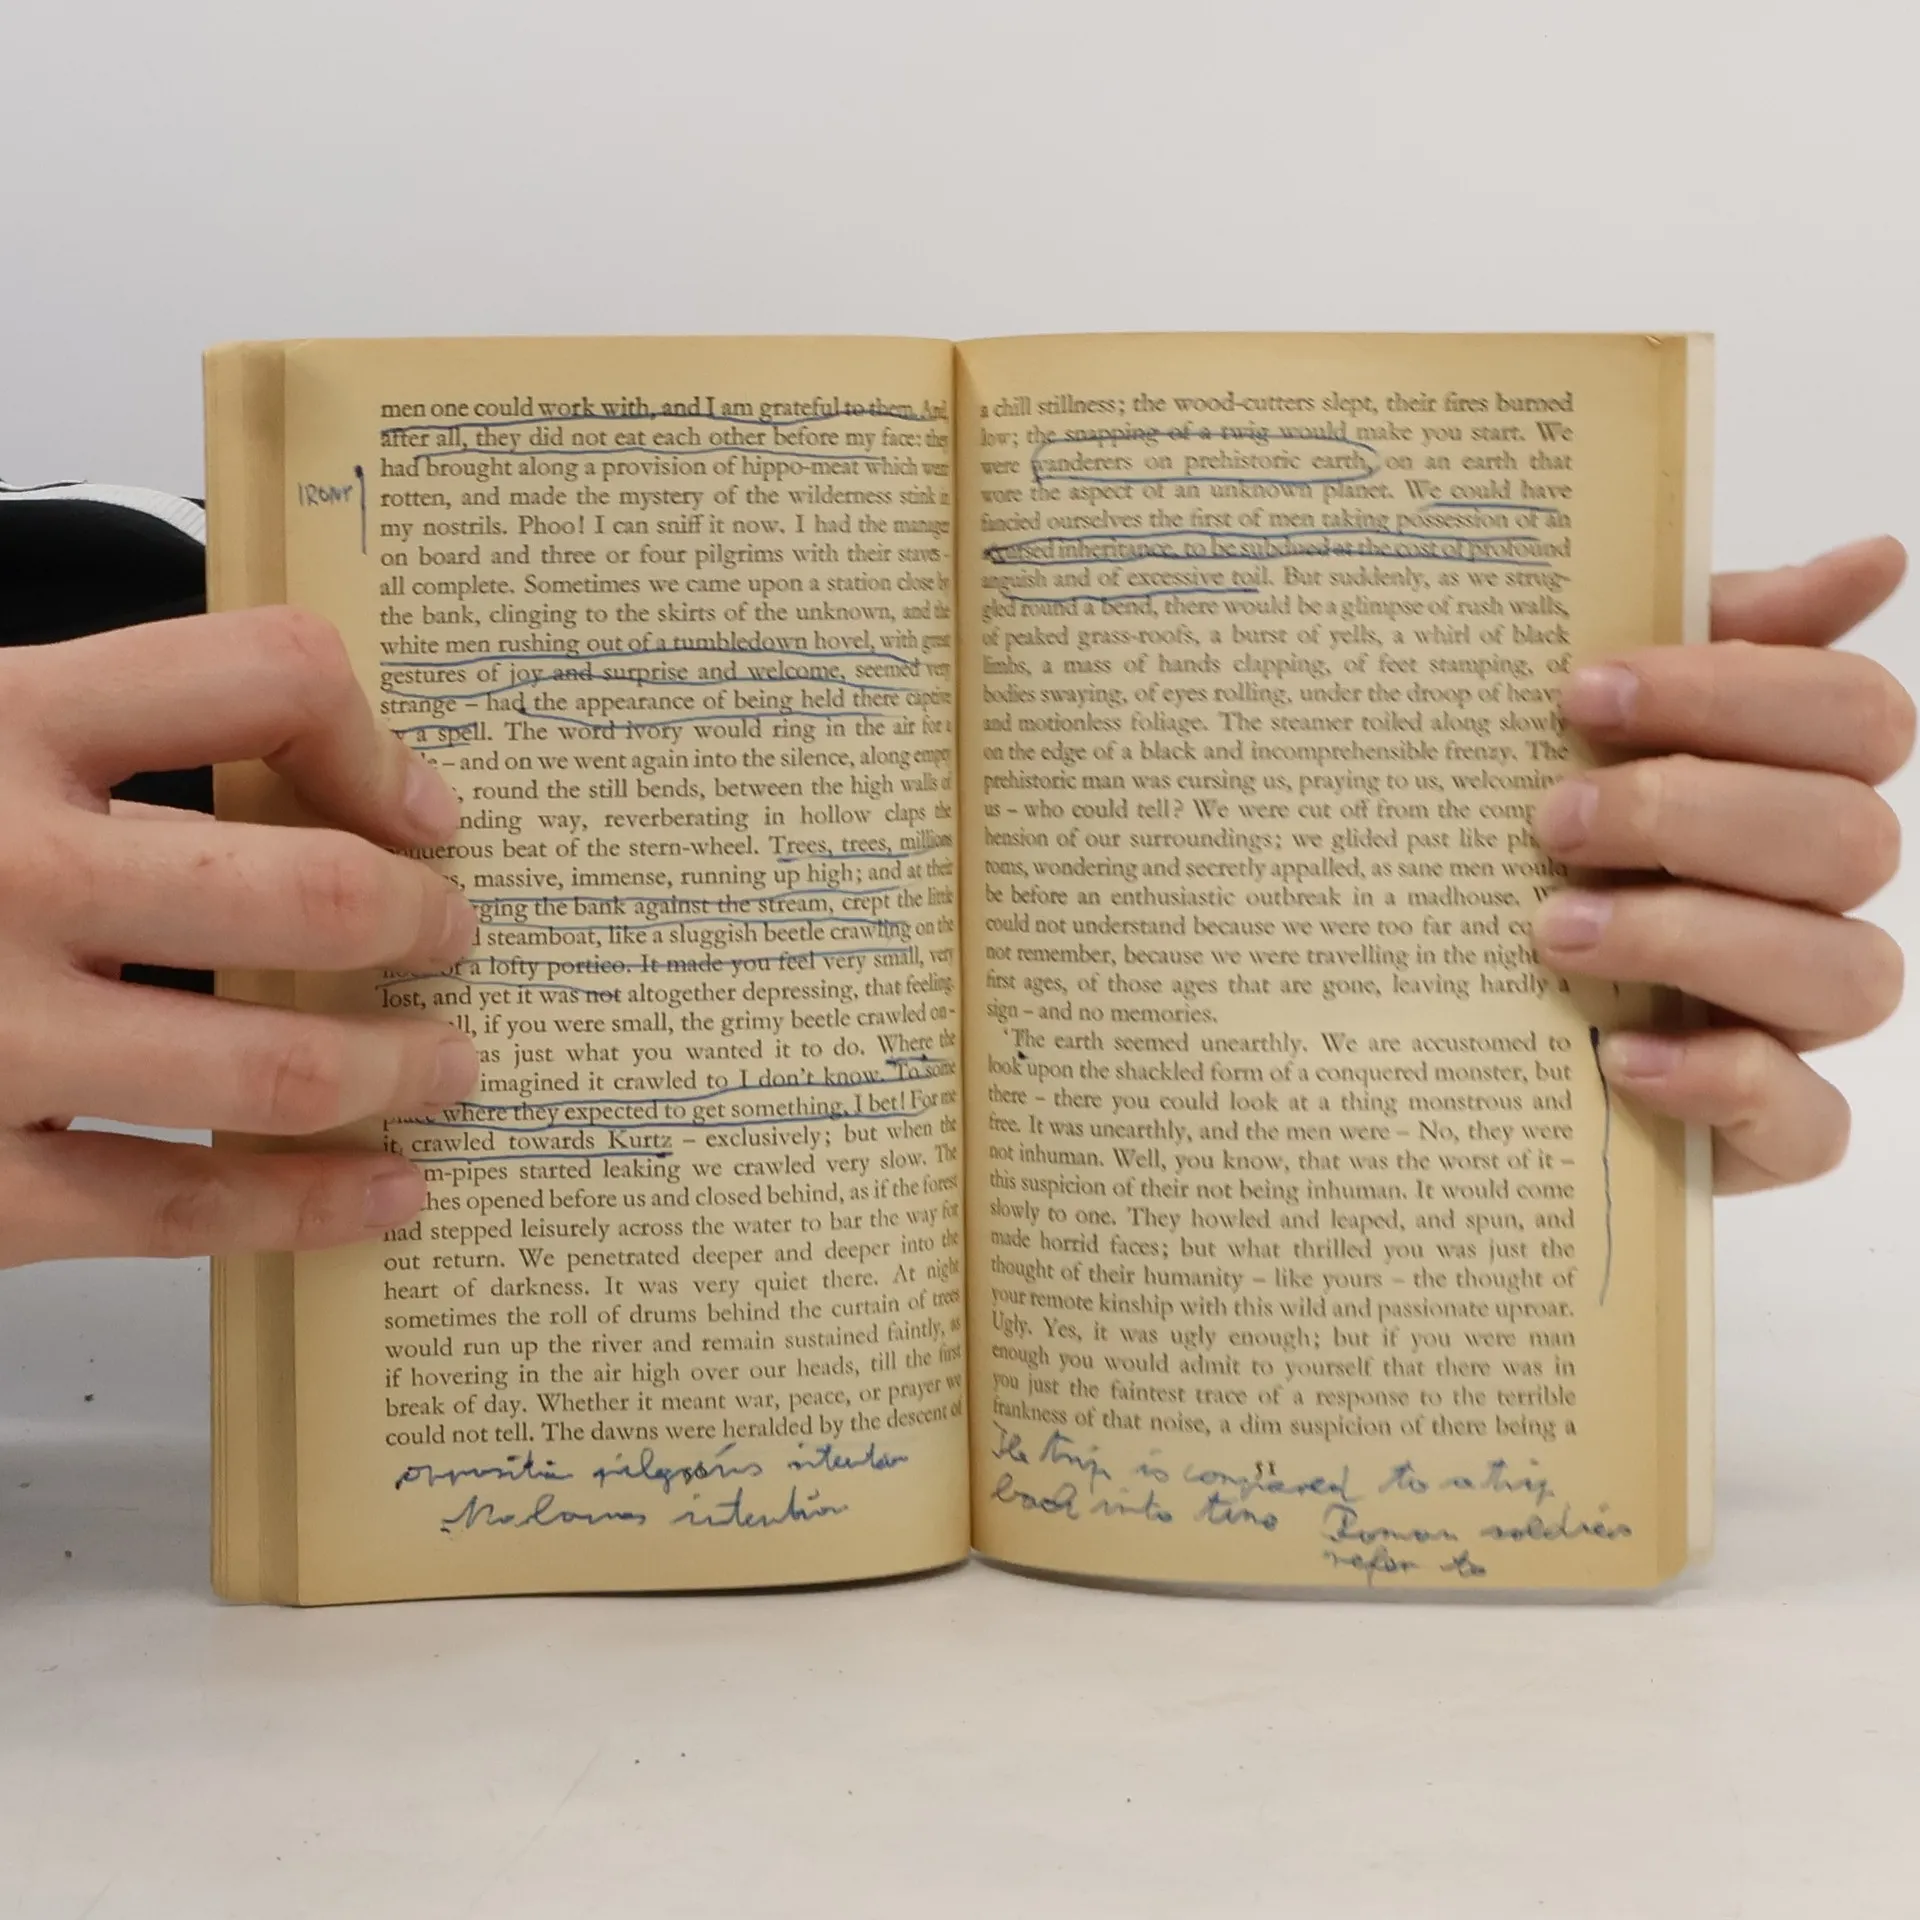 men one could work with, and I am grateful to them. And,
after all, they did not eat each other before my face: they
had brought along a provision of hippo-meat which went
IRONY
rotten, and made the mystery of the wilderness stink in
my nostrils. Phoo! I can sniff it now. I had the manager
on board and three or four pilgrims with their staves –
all complete. Sometimes we came upon a station close by
the bank, clinging to the skirts of the unknown, and the
white men rushing out of a tumbledown hovel, with great
gestures of joy and surprise and welcome, seemed very
strange – had the appearance of being held there captive
a spell. The word ivory would ring in the air for a
– and on we went again into the silence, along empty
, round the still bends, between the high walls of
nding way, reverberating in hollow claps the
beat of the stern-wheel. Trees, trees, millions
, massive, immense, running up high; and at their
ging the bank against the stream, crept the little
steamboat, like a sluggish beetle crawling on the
of a lofty portico. It made you feel very small, very
lost, and yet it was not altogether depressing, that feeling.
ll, if you were small, the grimy beetle crawled on –
as just what you wanted it to do. Where the
imagined it crawled to I don't know. To some
place where they expected to get something, I bet! For me
it crawled towards Kurtz – exclusively; but when the
m-pipes started leaking we crawled very slow. The
hes opened before us and closed behind, as if the forest
had stepped leisurely across the water to bar the way for
out return. We penetrated deeper and deeper into the
heart of darkness. It was very quiet there. At night
sometimes the roll of drums behind the curtain of trees
would run up the river and remain sustained faintly, as
if hovering in the air high over our heads, till the first
break of day. Whether it meant war, peace, or prayer we
could not tell. The dawns were heralded by the descent of
intention
intention
a chill stillness; the wood-cutters slept, their fires burned
low; the snapping of a twig would make you start. We
were wanderers on prehistoric earth, on an earth that
wore the aspect of an unknown planet. We could have
fancied ourselves the first of men taking possession of an
accursed inheritance, to be subdued at the cost of profound
anguish and of excessive toil. But suddenly, as we strug-
gled round a bend, there would be a glimpse of rush walls,
of peaked grass-roofs, a burst of yells, a whirl of black
limbs, a mass of hands clapping, of feet stamping, of
bodies swaying, of eyes rolling, under the droop of heavy
and motionless foliage. The steamer toiled along slowly
on the edge of a black and incomprehensible frenzy. The
prehistoric man was cursing us, praying to us, welcoming
us – who could tell? We were cut off from the comp
hension of our surroundings; we glided past like ph
toms, wondering and secretly appalled, as sane men would
be before an enthusiastic outbreak in a madhouse. W
could not understand because we were too far and co
not remember, because we were travelling in the night
first ages, of those ages that are gone, leaving hardly a
sign – and no memories.
'The earth seemed unearthly. We are accustomed to
look upon the shackled form of a conquered monster, but
there – there you could look at a thing monstrous and
free. It was unearthly, and the men were – No, they were
not inhuman. Well, you know, that was the worst of it –
this suspicion of their not being inhuman. It would come
slowly to one. They howled and leaped, and spun, and
made horrid faces; but what thrilled you was just the
thought of their humanity – like yours – the thought of
your remote kinship with this wild and passionate uproar.
Ugly. Yes, it was ugly enough; but if you were man
enough you would admit to yourself that there was in
you just the faintest trace of a response to the terrible
frankness of that noise, a dim suspicion of there being a
51
The trip is compared to a trip
back into time Roman soldiers
refer to